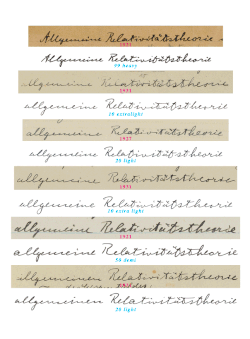 Allgemeine Relativitätstheorie.
1931
Allgemeine Relativitätstheorie
99 heavy
Allgemeine Relativitätstheorie
1931
allgemeine Relativitätstheorie
10 extralight
Allgemeine Relativitätstheorie
1927
allgemeine Relativitätstheorie
20 light
allgemeine Relativitätstheorie
1931
allgemeine Relativitätstheorie
10 extra light
allgemeine Relativitätstheorie
1921
allgemeine Relativitätstheorie
50 demi
allgemeinen Relativitätstheorie
allgemeinen Relativitätstheorie
20 light